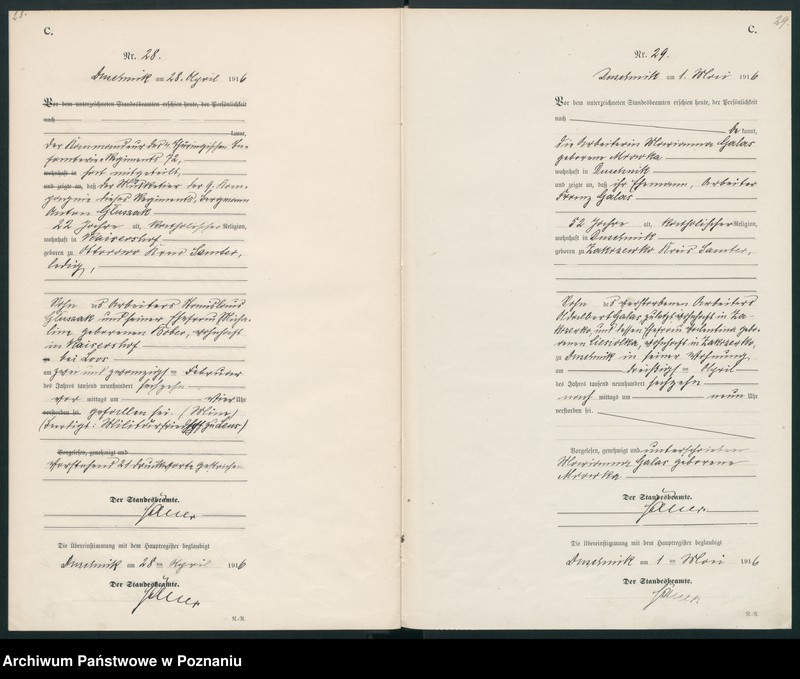 28.
C.
Nr. 28.
Duschnik am 28. April 1916
Vor dem unterzeichneten Standesbeamten erschien heute, der Persönlichkeit
nach
kannt,
Der Kommandeur des 4. Thüringischen In-
fanterie-Regiments 72,
wohnhaft in hat mitgeteilt,
und zeigte an, daß der Musketier der 9. Kom-
pagnie dieses Regiments, Bergmann
Anton Gluszak
22 Jahre alt, katholischer Religion,
wohnhaft in Kaisershof
geboren zu Ottorowo Kreis Samter,
ledig,
Sohn des Arbeiters Stanislaus
Gluszak und seiner Ehefrau Micha-
line geborenen, wohnhaft
in Kaisershof
bei Loos
am zwei und zwanzigsten Februar
des Jahres tausend neunhundert sechzehn
vor mittags um vier Uhr
verstorben sei. gefallen sei. (Mine)
Vorgelesen, genehmigt und
Vorstehend 21 Druckworte gestrichen.
Der Standesbeamte.
Die Übereinstimmung mit dem Hauptregister beglaubigt
Duschnik am 28ten April 1916
Der Standesbeamte.
R.-R.
29.
C.
Nr. 29.
Duschnik am 1. Mai 1916
Vor dem unterzeichneten Standesbeamten erschien heute, der Persönlichkeit
nach
be kannt,
die Arbeiterin Marianna Galas
geborene Mrowka
wohnhaft in Duschnik
und zeigte an, daß ihr Ehemann, Arbeiter
Franz Galas
52 Jahre alt, katholischer Religion,
wohnhaft in Duschnik
geboren zu Zakrzewko Kreis Samter,
Sohn des verstorbenen Arbeiters
Adalbert Galas, zuletzt wohnhaft in Za-
krzewko, und dessen Ehefrau Valentina gebo-
renen, wohnhaft in Zakrzewko,
zu Duschnik in seiner Wohnung,
am dreißigsten April
des Jahres tausend neunhundert sechzehn
nach mittags um neun Uhr
verstorben sei.
Vorgelesen, genehmigt und unterschrieben
Marianna Galas geborene
Mrowka
Der Standesbeamte.
Die Übereinstimmung mit dem Hauptregister beglaubigt
Duschnik am 1ten Mai 1916
Der Standesbeamte.
R.-R.
Archiwum Państwowe w Poznaniu